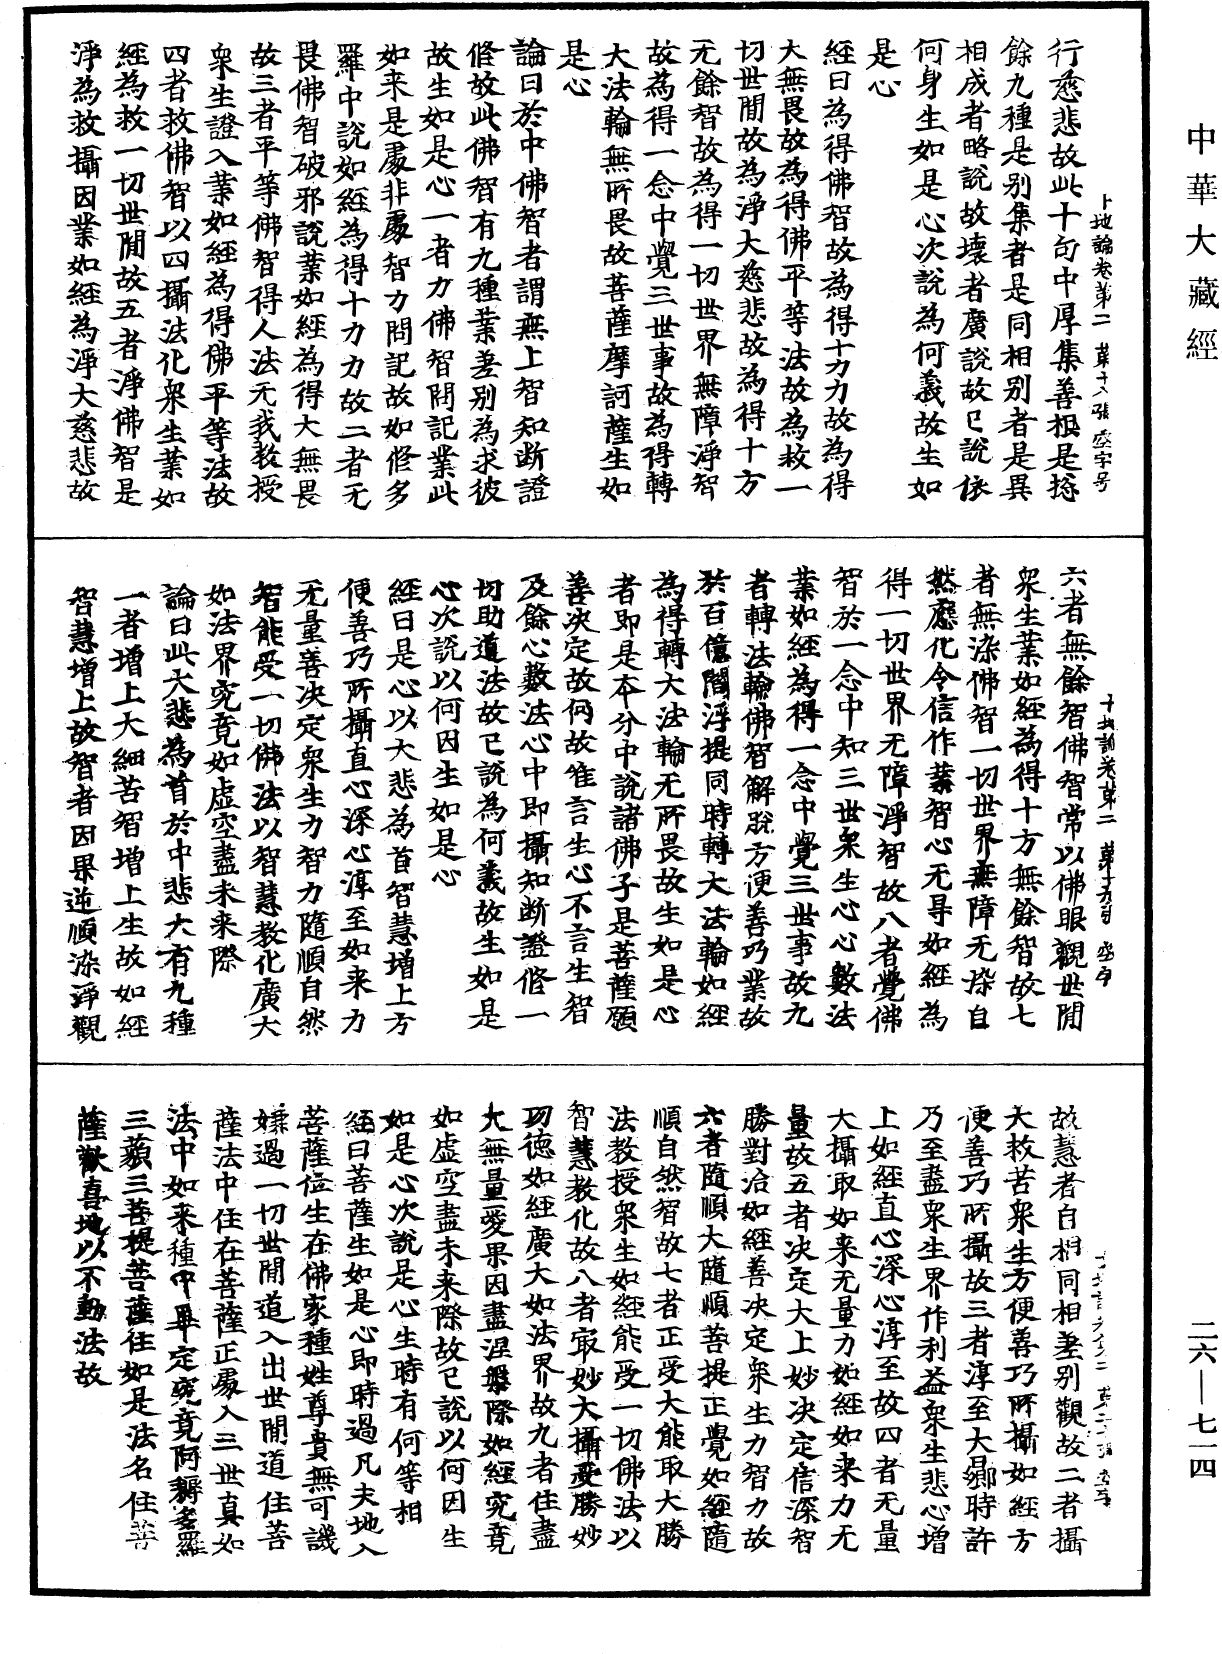 中華大藏經
二六—七一四
十地論卷第二 第十八張 空字号
行慈悲故此十句中厚集善根是揔
餘九種是别集者是同相别者是異
相成者略說故壞者廣說故已說依
何身生如是心次說為何義故生如
是心
經曰為得佛智故為得十力力故為得
大無畏故為得佛平等法故為救一
切世間故為淨大慈悲故為得十方
无餘智故為得一切世界無障淨智
故為得一念中覺三世事故為得轉
大法輪無所畏故菩薩摩訶薩生如
是心
論曰於中佛智者謂無上智知断證
修故此佛智有九種業差别為求彼
故生如是心一者力佛智問記業此
如来是處非處智力問記故如修多
羅中說如經為得十力力故二者无
畏佛智破邪說業如經為得大無畏
故三者平等佛智得人法无我教授
衆生證入業如經為得佛平等法故
四者救佛智以四攝法化衆生業如
經為救一切世間故五者淨佛智是
淨為救攝因業如經為淨大慈悲故
十地論卷第二 第十九張 空字
六者無餘智佛智常以佛眼觀世間
衆生業如經為得十方無餘智故七
者無染佛智一切世界無障无染自
然應化令信作業智心无㝵如經為
得一切世界无障淨智故八者覺佛
智於一念中知三世衆生心心數法
業如經為得一念中覺三世事故九
者轉法輪佛智解脫方便善巧業故
於百億閻浮提同時轉大法輪如經
為得轉大法輪无所畏故生如是心
者即是本分中說諸佛子是菩薩願
善决定故何故唯言生心不言生智
及餘心數法心中即攝知断證修一
切助道法故已說為何義故生如是
心次說以何因生如是心
經曰是心以大悲為首智慧增上方
便善巧所攝直心深心淳至如来力
无量善决定衆生力智力隨順自然
智能受一切佛法以智慧教化廣大
如法界究竟如虛空盡未来際
論曰此大悲為首於中悲大有九種
一者增上大細苦智增上生故如經
智慧增上故智者因果逆順染淨觀
故慧者自相同相差别觀故二者攝
大救苦衆生方便善巧所攝如經方
便善巧所攝故三者淳至大曏時許
乃至盡衆生界作利益衆生悲心增
上如經直心深心淳至故四者无量
大攝取如来无量力如經如来力无
量故五者决定大上妙决定信深智
勝對治如經善决定衆生力智力故
六者隨順大隨順菩提正覺如經隨
順自然智故七者正受大能取大勝
法教授衆生如經能受一切佛法以
智慧教化故八者㝡妙大攝受勝妙
功德如經廣大如法界故九者住盡
大無量愛果因盡涅槃際如經究竟
如虛空盡未来際故已說以何因生
如是心次說是心生時有何等相
經曰菩薩生如是心即時過凡夫地入
菩薩位生在佛家種姓尊貴無可譏
嫌過一切世間道入出世間道住菩
薩法中住在菩薩正處入三世真如
法中如来種中畢定究竟阿耨多羅
三藐三菩提菩薩住如是法名住菩
薩歡喜地以不動法故